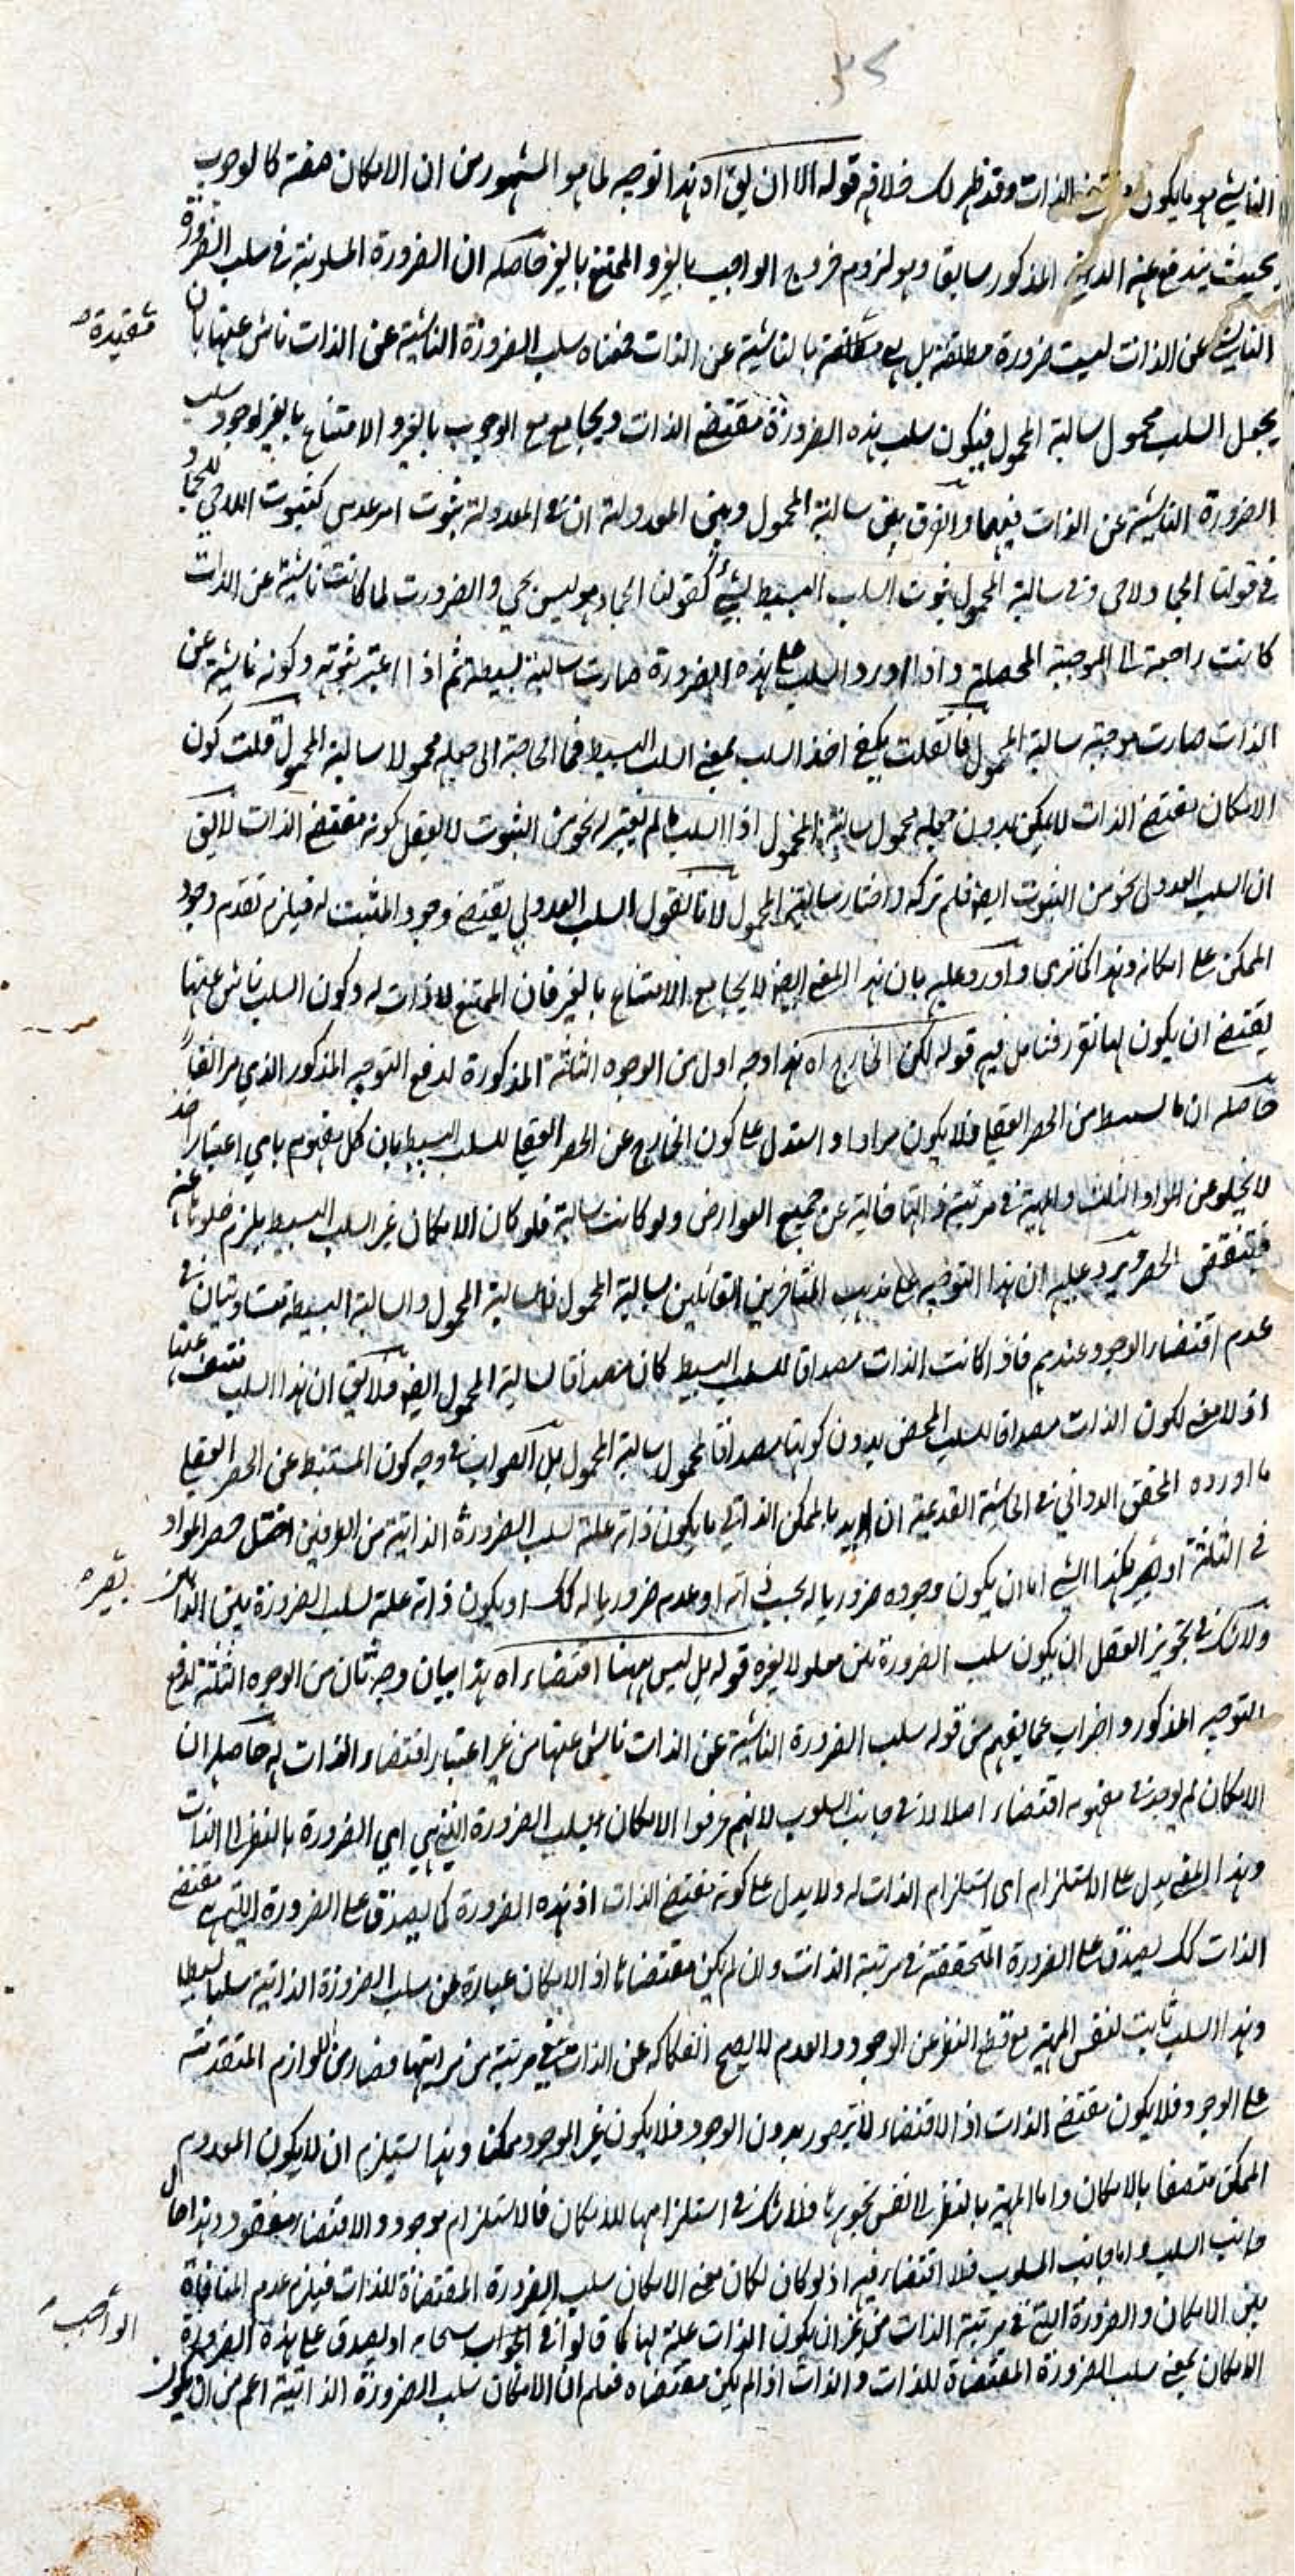 ٣٤
الناشى هو ما يكون الذات وقد ظهر لك خلافه قوله الا ان يق اه هذا توجيه لما هو المشهور من ان الامكان صفة كالوجوب
بحيث يندفع عنه المذكور سابقا وهو لزوم خروج الواجب بالغير والممتنع بالغير حاصله ان الضرورة المسلوبة فى سلب الضرورة
الناشية عن الذات ليست ضرورة مطلقة بل هى بالناشية عن الذات فمعناه سلب الضرورة الناشية عن الذات ناش عنها بان
مقيدة صح
يجعل السلب محمول سالبة المحمول فيكون سلب هذه الضرورة مقتضى الذات ويجامع مع الوجوب بالغير والامتناع بالغير لوجود سلب
الضرورة الناشية عن الذات فيهما والفرق بين سالبة المحمول وبين المعدولة ان فى المعدولة ثبوت امر عدمى كثبوت اللاحى للجماد
فى قولنا الجماد لاحى وفى سالبة المحمول ثبوت السلب البسيط لشئ كقولنا الجماد هو ليس بحى والضرورت لما كانت ناشية عن الذات
كانت راجعة الى الموجبة المحصلة واذا اورد السلب على هذه الضرورة صارت سالبة بسيطة ثم اذا اعتبر ثبوته وكونه ناشية عن
الذات صارت موجبة سالبة المحمول فان قلت يكفى اخذ السلب بمعنى السلب البسيط فما الحاجة الى جعله محمولا سالبة المحمول قلت كون
الامكان مقتضى الذات لا يمكن بدون جعله محمول سالبة المحمول اذ السلب ما لم يعتبر له نحو من الثبوت لا يعقل كونه مقتضى الذات لا يق
ان السلب العدولى نحو من الثبوت ايضا فلم تركه واختار سالبة المحمول لانا نقول السلب العدولى يقتضى وجود المثبت له فيلزم تقدم وجود
الممكن على امكانه وهذا كما ترى واورد عليه بان هذا المعنى ايضا لا يجامع الامتناع بالغير فان الممتنع لا ذات له وكون السلب ناش عنها
يقتضى ان يكون لها تقرر فتامل فيه قوله لكن الخارج اه هذا وجه اول من الوجوه الثلثة المذكورة لدفع التوجيه المذكور الذى مر انفا
حاصله ان ما من الحصر العقلى فلا يكون مرادا واستدل على كون الخارج عن الحصر العقلى للسلب البسيط بان كل مفهوم باى اعتبار اخذ
لا يخلو عن المواد الثلث والمهية فى مرتبة ذاتها خالية عن جميع العوارض ولو كانت سالبة فلو كان الامكان غير السلب البسيط يلزم خلوها عنه
فينتقض الحصر ويرد عليه ان هذا التوجيه على مذهب المتاخرين القائلين بسالبة المحمول فالسالبة المحمول والسالبة البسيطة متساويتان فى
عدم اقتضاء الوجود عندهم فاذا كانت الذات مصداقا للسلب البسيط كان مصداقا لسالبة المحمول ايضا فلا يق ان هذا السلب منتف عنها
اذ لا معنى لكون الذات مصداقا للسلب المحض بدون كونها مصداقا لمحمول سالبة المحمول بل الصواب فى وجه كون المستنبط عن الحصر العقلى
ما اورده المحقق الدوانى فى الحاشية القديمة ان اريد بالممكن الذاتى ما يكون ذاته علة لسلب الضرورة الذاتية من الطرفين اختل حصر المواد
فى الثلثة اذ يصير هكذا الشئ اما ان يكون وجوده ضروريا له بحسب ذاته او عدمه ضروريا له كك او يكون ذاته علة لسلب الضرورتين
يصير صح
ولا شك فى تجويز العقل ان يكون سلب الضرورتين معلولا لغيره قوله بل ليس ههنا اقتضاء اه هذا بيان وجه ثان من الوجوه الثلثة لدفع
التوجيه المذكور واضراب عما يفهم من قوله سلب الضرورة الناشية عن الذات ناش عنها من غير اعتبار اقتضاء الذات له حاصله ان
الامكان لم يوجد فى مفهومه اقتضاء اصلا لا فى جانب السلوب لانهم عرفوا الامكان بسلب الضرورة التى هى اى الضرورة بالنظر الى الذات
وهذا المعنى يدل على الاستلزام اى استلزام الذات له ولا يدل على كونه مقتضى الذات اذ هذه الضرورة كما يصدق على الضرورة التى هى مقتضى
الذات كك يصدق على الضرورة المتحققة فى مرتبة الذات وان لم يكن مقتضاها اذ الامكان عبارة عن سلب الضرورة الذاتية سلبا بسيطا
وهذا السلب ثابت لنفس المهية مع قطع النظر عن الوجود والعدم لا يصح انفكاكه عن الذات فى مرتبة من مراتبها فصار من اللوازم المتقدمة
على الوجود فلا يكون مقتضى الذات اذ الاقتضاء لا يتصور بدون الوجود فلا يكون غير الموجود ممكنا وهذا يستلزم ان لا يكون المعدوم
الممكن متصفا بالامكان واما المهية بالنظر الى نفس تجوهرها فلا شك فى استلزامها للامكان فالاستلزام موجود والاقتضاء مفقود وهذا حال
جانب السلب واما جانب المسلوب فلا اقتضاء فيه اذ لو كان لكان معنى الامكان سلب الضرورة المقتضاة للذات فيلزم عدم المنافاة
بين الامكان والضرورة التى فى مرتبة الذات من غير ان يكون الذات علة لها كما قالوا فى الواجب سبحانه اذ يصدق على هذه الضرورة
الواجب صح
الامكان بمعنى سلب الضرورة المقتضاة للذات والذات اذا لم يكن مقتضاه فعلم ان الامكان سلب الضرورة الذاتية اعم من ان يكون